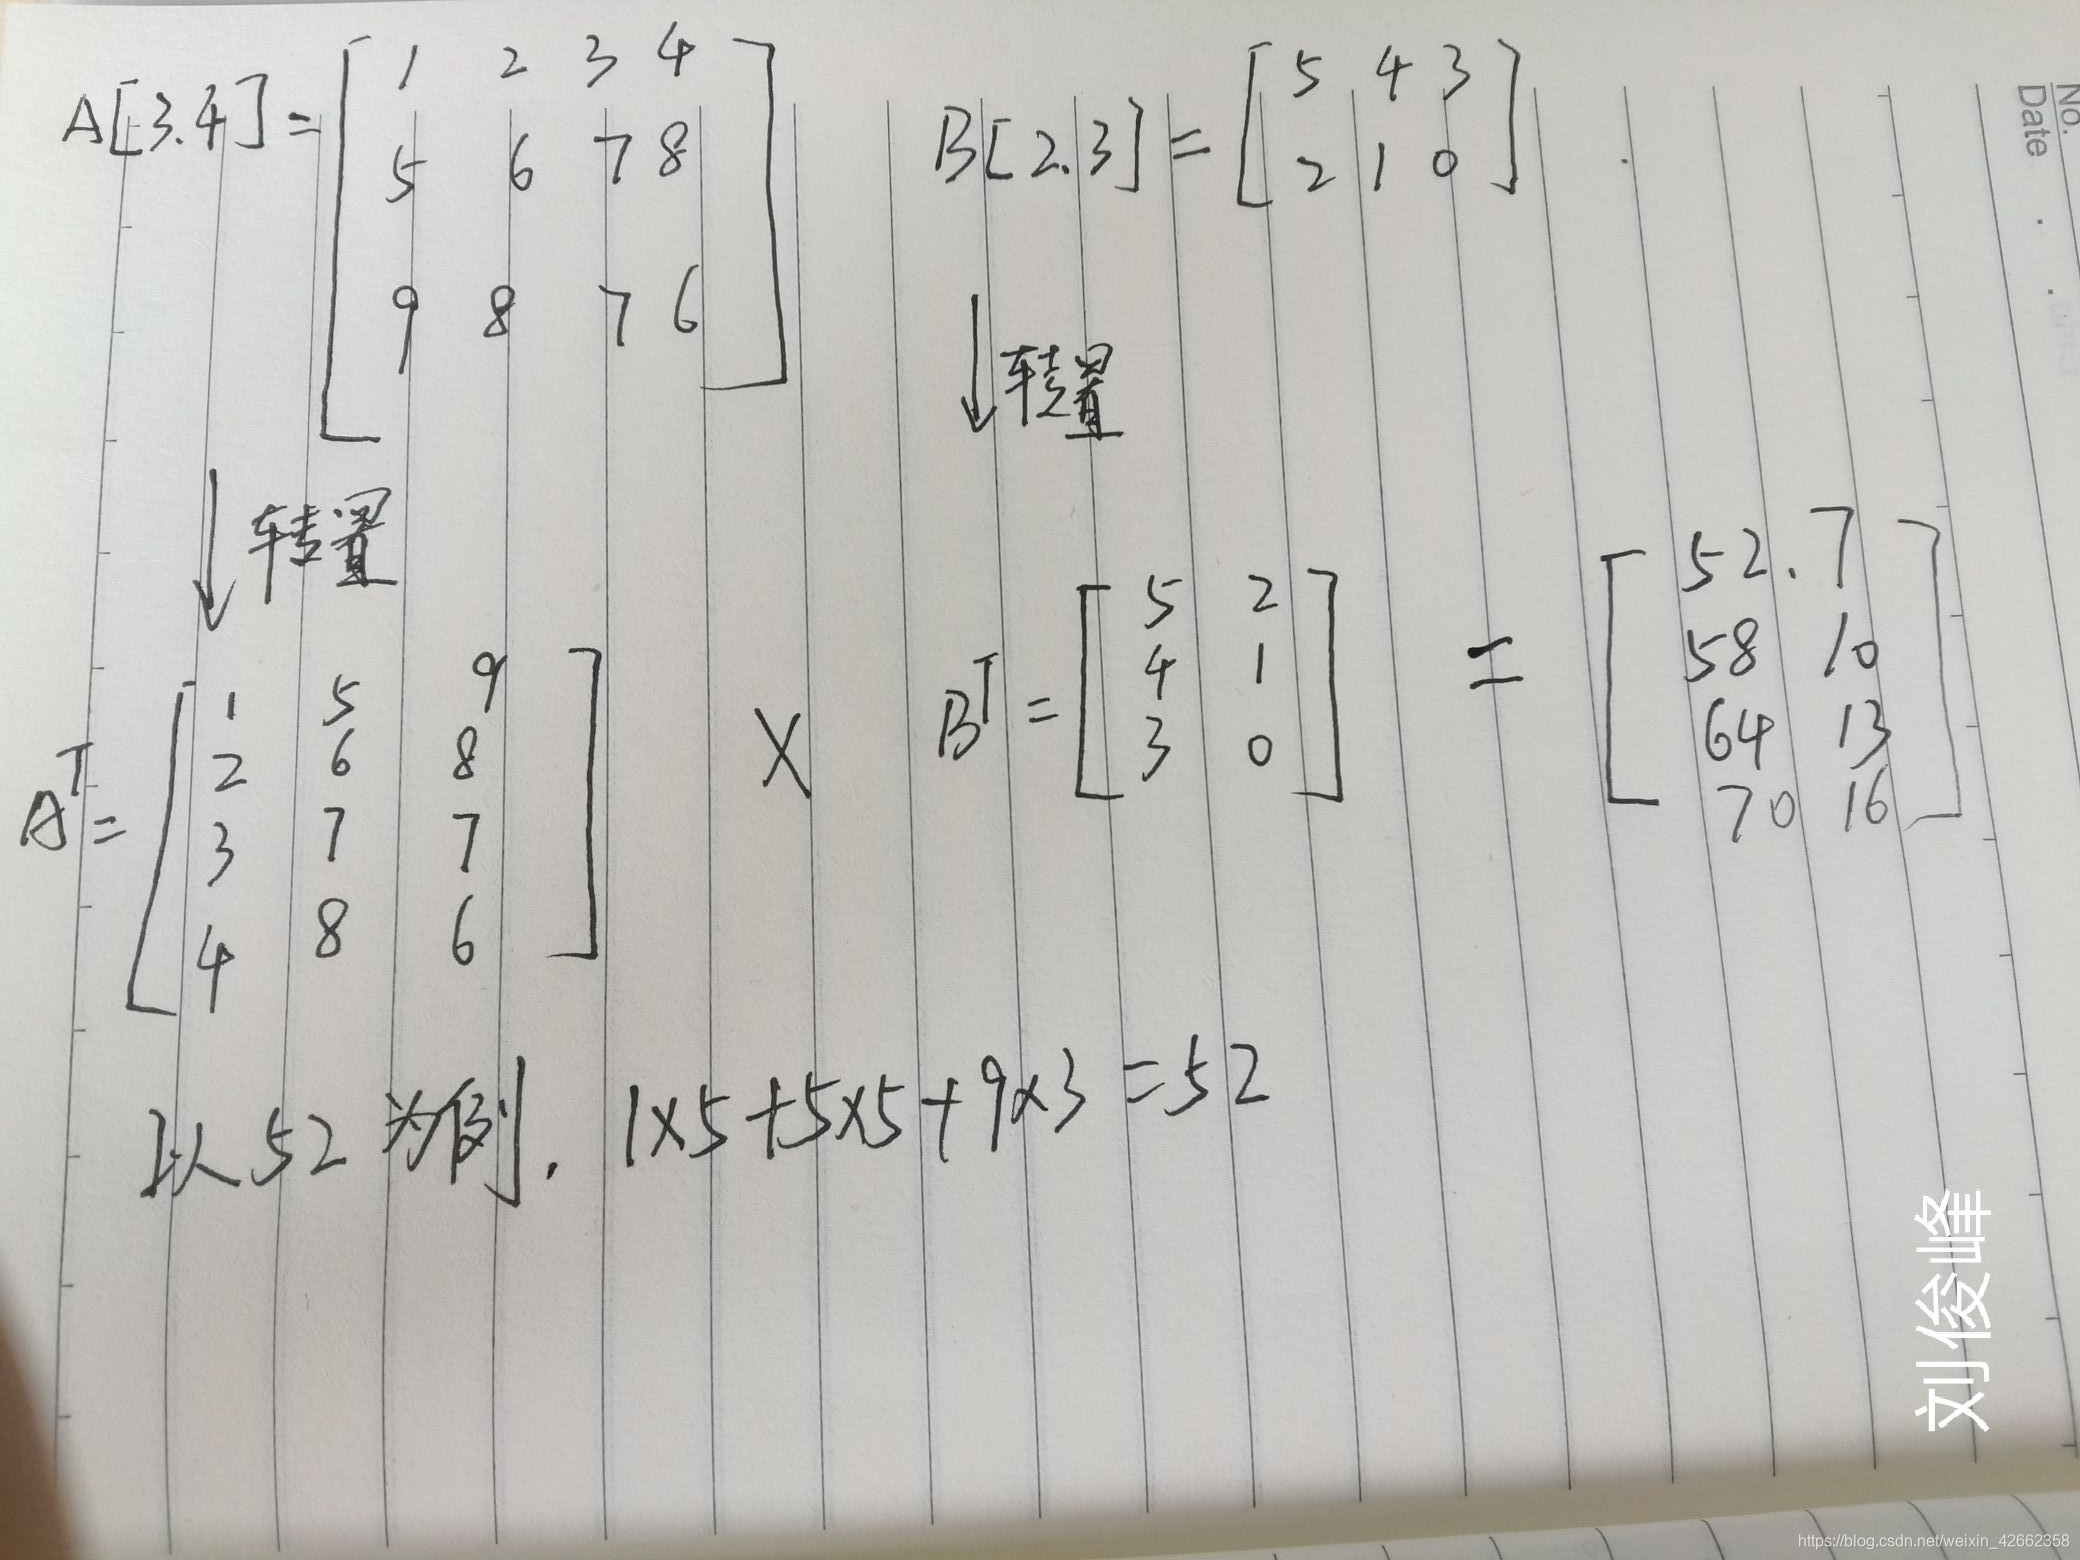 A[3.4] = [ 1 2 3 4
5 6 7 8
9 8 7 6 ]
B[2.3] = [ 5 4 3
2 1 0 ]
↓ 转置
↓ 转置
A^T = [ 1 5 9
2 6 8
3 7 7
4 8 6 ]
×
B^T = [ 5 2
4 1
3 0 ]
=
[ 52. 7
58 10
64 13
70 16 ]
以52为例. 1×5+5×5+9×3=52
No.
Date
刘俊峰
https://blog.csdn.net/weixin_42662358